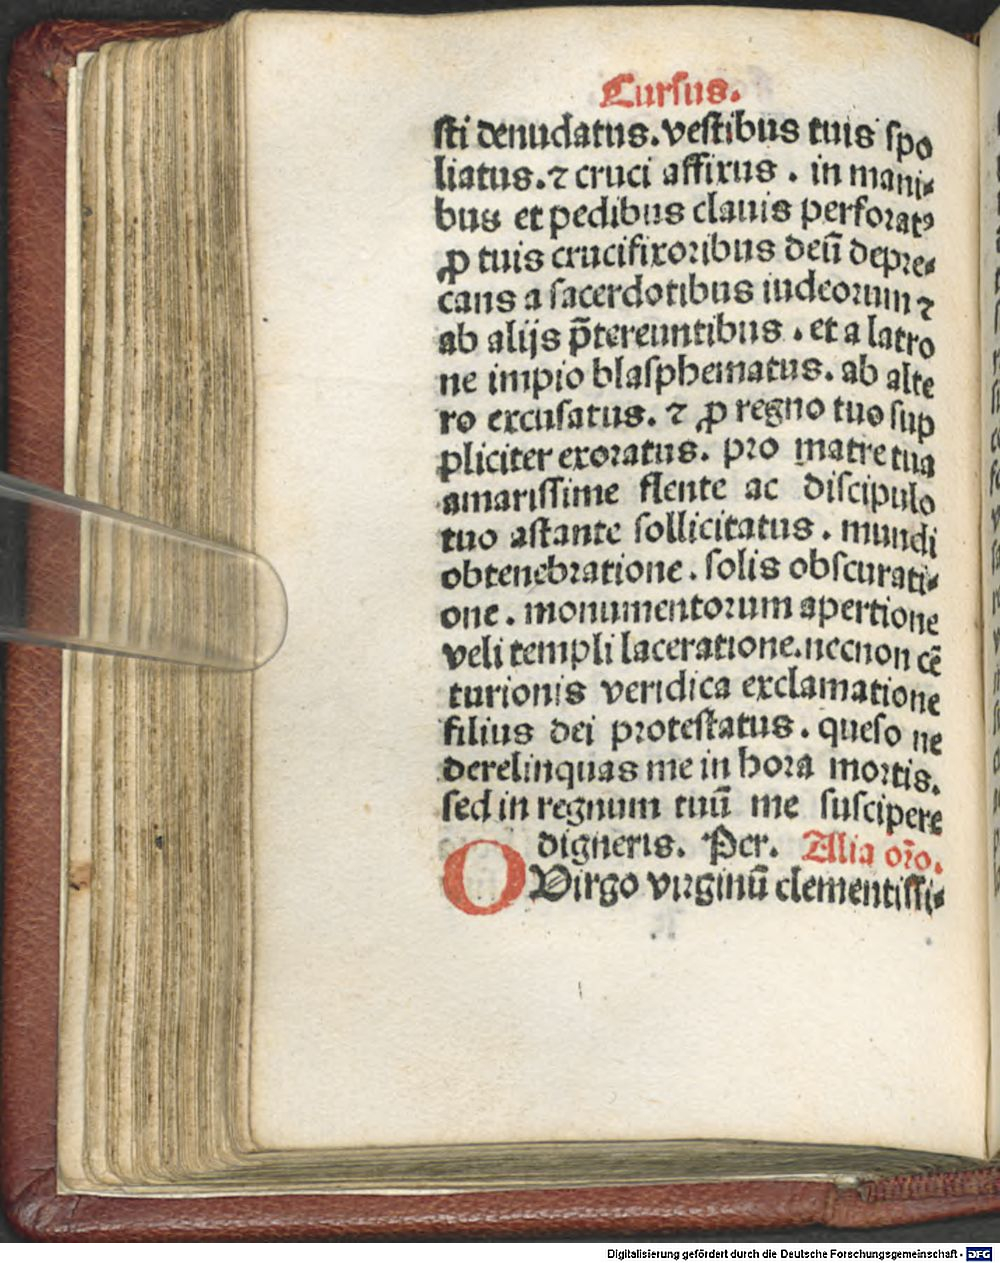 Cursus.
sti denudatus. vestibus tuis spo
liatus. ⁊ cruci affixus . in mani⸗
bus et pedibus clauis perforatꝰ
ꝓ tuis crucifixoribus deū depre⸗
cans a sacerdotibus iudeorum ⁊
ab alijs p̄tereuntibus . et a latro
ne impio blasphematus. ab alte
ro excusatus. ⁊ ꝓ regno tuo sup
pliciter exoratus. pro matre tua
amarissime flente ac discipulo
tuo astante sollicitatus . mundi
obtenebratione . solis obscurati⸗
one . monumentorum apertione
veli templi laceratione. necnon cē
turionis veridica exclamatione
filius dei protestatus . queso ne
derelinquas me in hora mortis.
sed in regnum tuū me suscipere
digneris. Per. Alia oro̅.
O Virgo virginū clementissi⸗
Digitalisierung gefördert durch die Deutsche Forschungsgemeinschaft - DFG